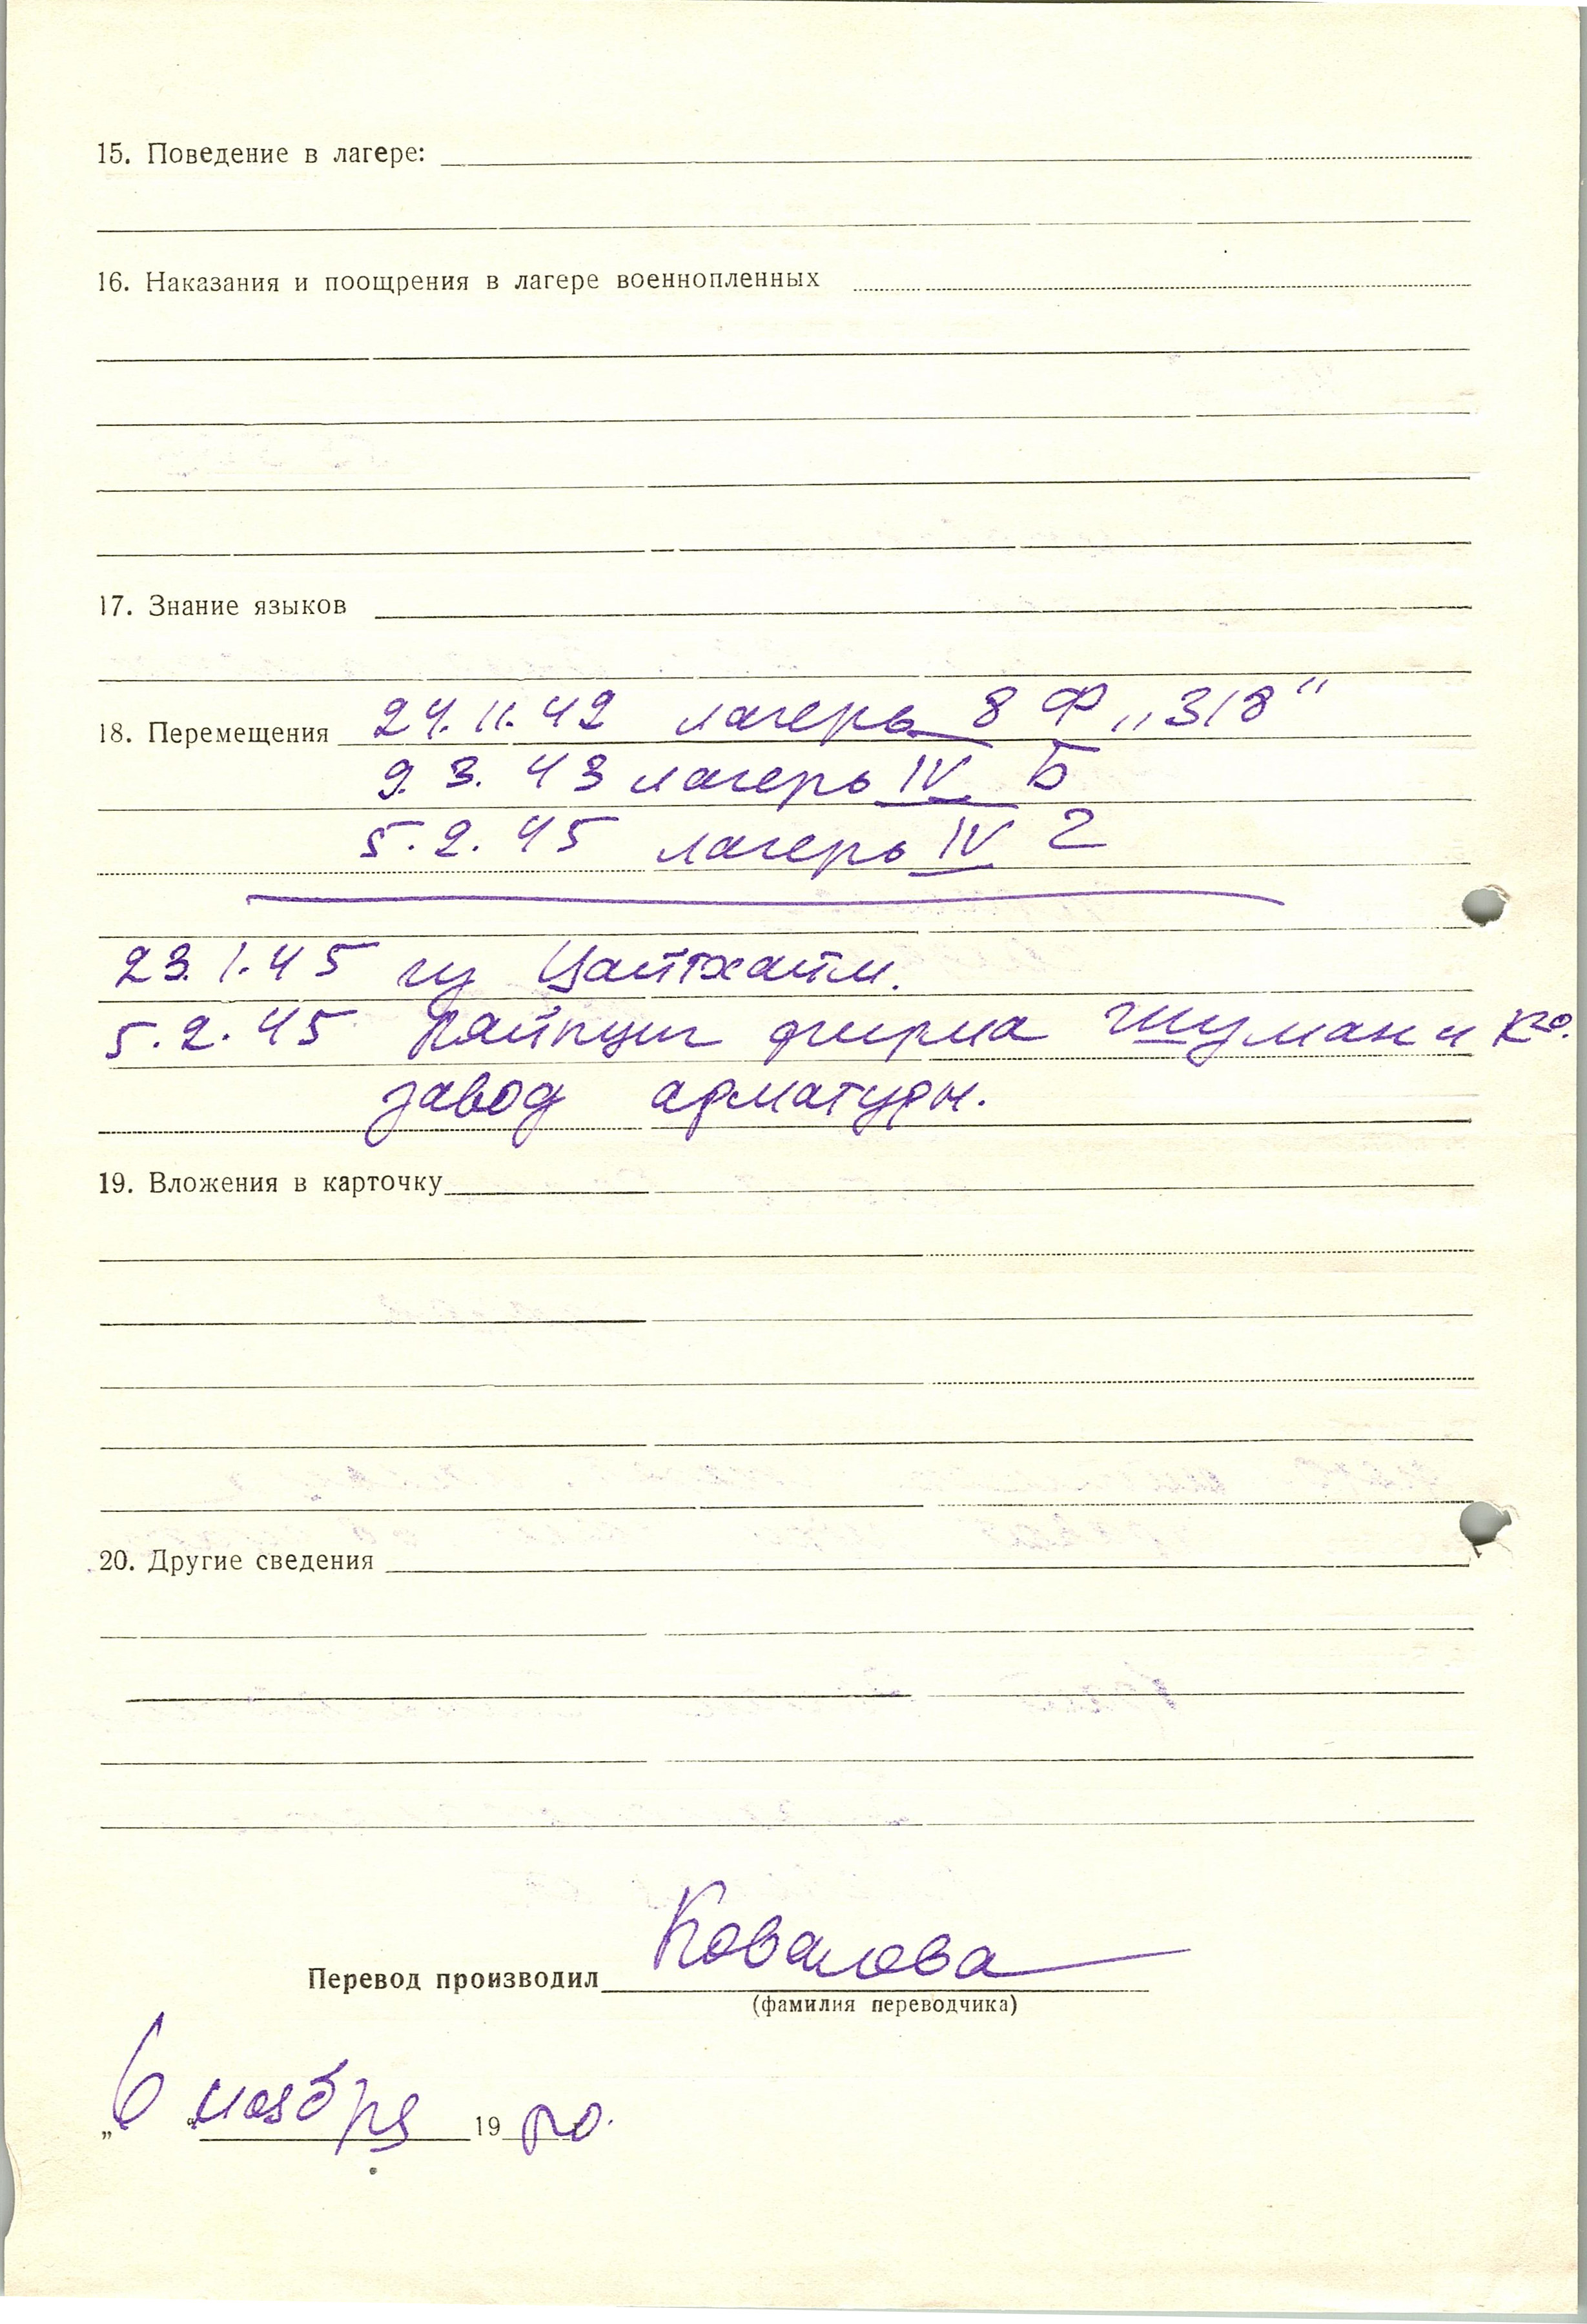 15. Поведение в лагере:
16. Наказания и поощрения в лагере военнопленных
17. Знание языков
18. Перемещения 24.11.42 лагерь 8 Ф „318“
9.3.43 лагерь IV Б
5.2.45 лагерь IV Г
23.1.45 из Цайтхайм.
5.2.45 Лайпциг фирма Шуман и Ко.
завод арматуры.
19. Вложения в карточку
20. Другие сведения
Перевод производил Ковалева
(фамилия переводчика)
„6“ ноября 19